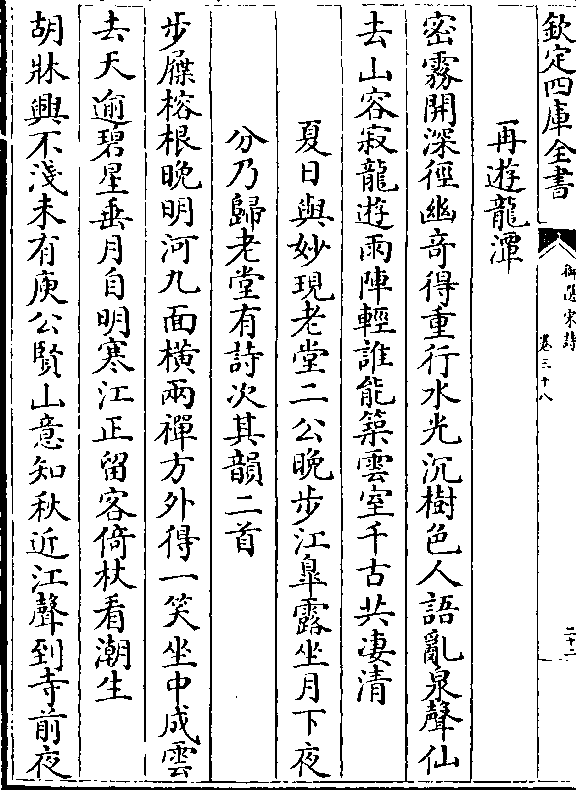 欽定四庫全書
御選宋詩
卷三十八
二十二
再遊龍潭
密霧開深徑幽奇得重行水光沉樹色人語亂泉聲仙
去山容寂龍遊雨陣輕誰能築雲室千古共凄清
夏日與妙現老堂二公晚步江臯露坐月下夜
分乃歸老堂有詩次其韻二首
步屧榕根晚明河九面橫兩禪方外得一笑坐中成雲
去天逾碧星垂月自明寒江正留客倚杖看潮生
胡牀興不淺未有庾公賢山意知秋近江聲到寺前夜